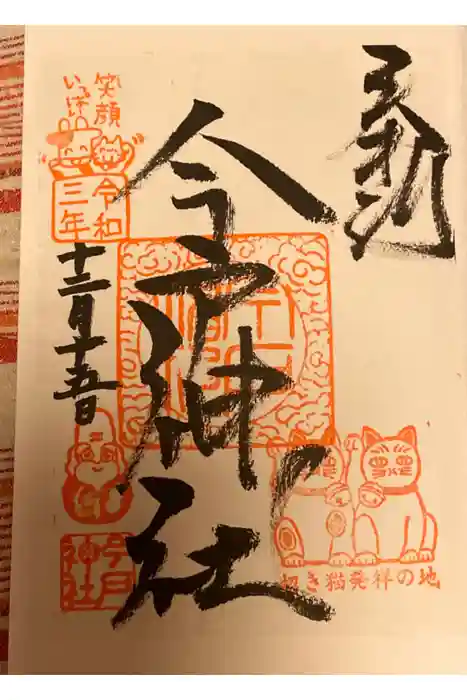 今戸神社
笑顔
いっぱい
令和
三年
十二月十五日
今戸
神社
招き猫発祥の地